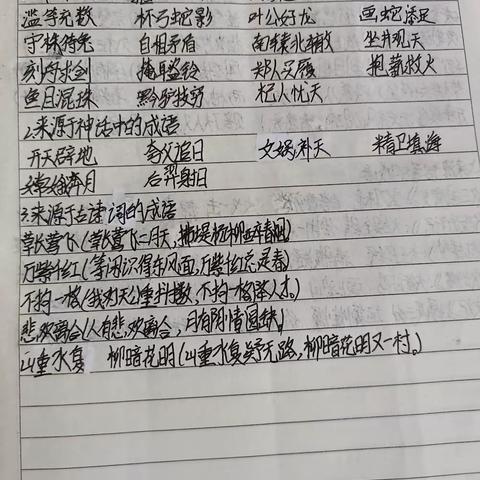 滥竽充数 杯弓蛇影 叶公好龙 画蛇添足
守株待兔 自相矛盾 南辕北辙 坐井观天
刻舟求剑 掩耳盗铃 郑人买履 抱薪救火
鱼目混珠 黔驴技穷 杞人忧天
2.来源于神话中的成语
开天辟地 夸父追日 女娲补天 精卫填海
嫦娥奔月 后羿射日
3.来源于古诗词的成语
草长莺飞(草长莺飞二月天,拂堤杨柳醉春烟)
万紫千红(等闲识得东风面,万紫千红总是春)
不拘一格(我劝天公重抖擞,不拘一格降人才。)
悲欢离合(人有悲欢离合,月有阴晴圆缺)
山重水复 柳暗花明(山重水复疑无路,柳暗花明又一村。)